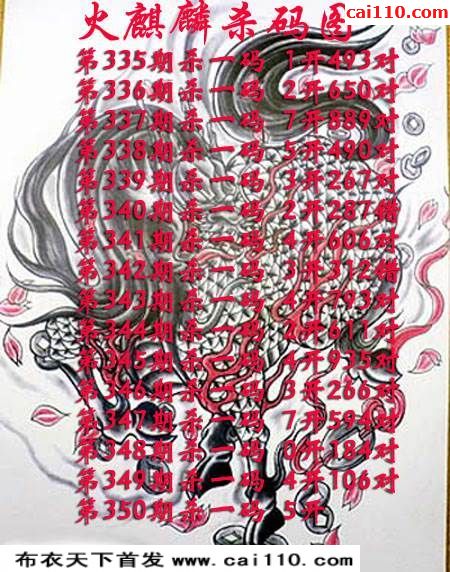 cai110.com
火麒麟杀码图
第335期杀一码 1开493对
第336期杀一码 2开650对
第337期杀一码 7开889对
第338期杀一码 5开490对
第339期杀一码 3开267对
第340期杀一码 2开287错
第341期杀一码 4开606对
第342期杀一码 3开312错
第343期杀一码 4开793对
第344期杀一码 2开611对
第345期杀一码 4开935对
第346期杀一码 3开266对
第347期杀一码 7开594对
第348期杀一码 0开184对
第349期杀一码 4开106对
第350期杀一码 5开
布衣天下首发 www.cai110.com